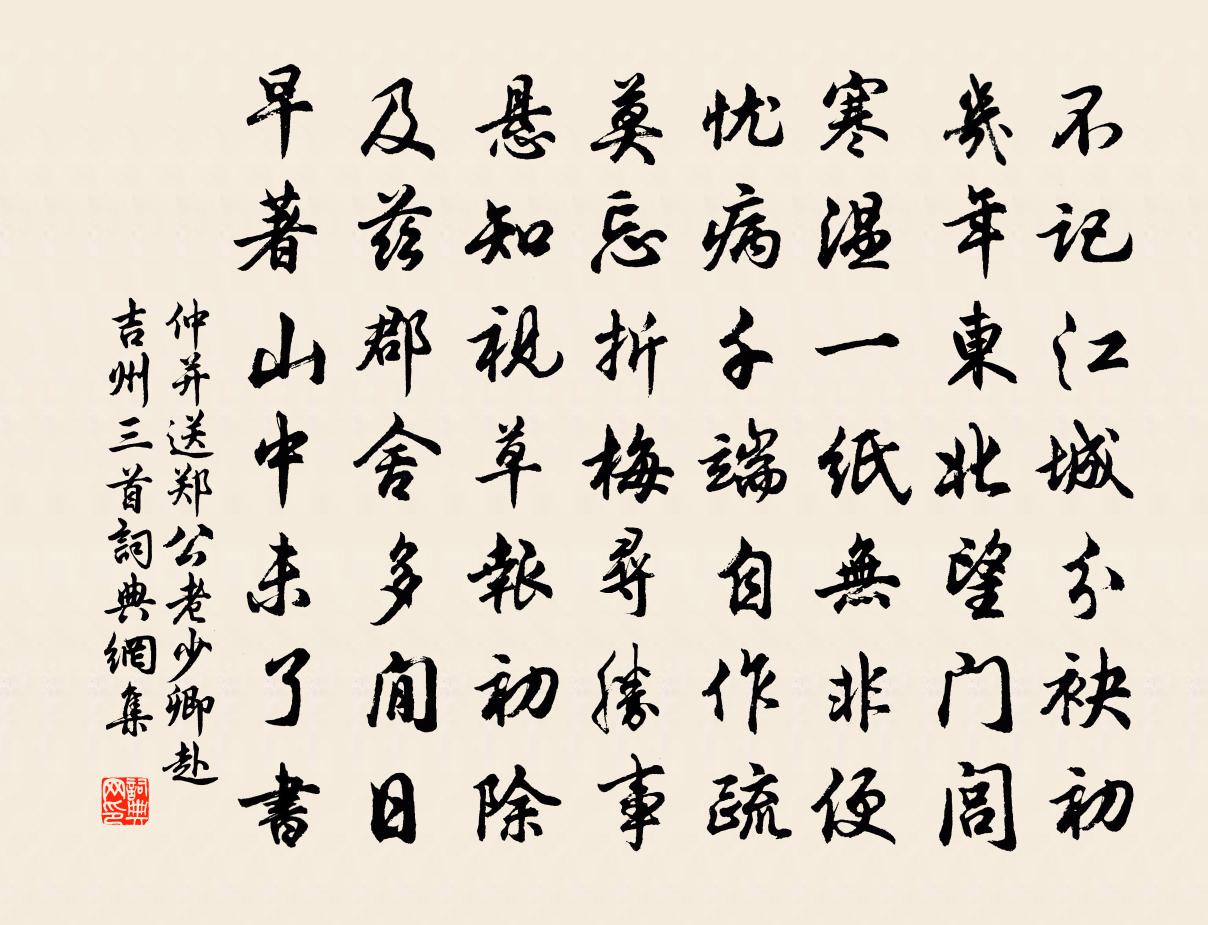 不记江城分袂初
幾年東北望门闾
寒温一纸無非便
忧病千端自作疏
莫忘折梅尋勝事
悬知視草報初除
及兹郡舍多闲日
早著山中未了書
仲并送郑公老少卿赴
吉州三首詞典網集
詞典
网印